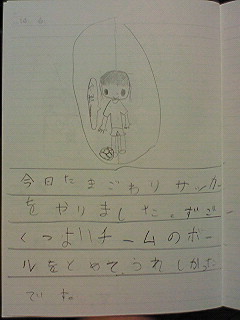 今日たまごわりサッカー
をやりました。すご
くつよいチームのボー
ルをとめてうれしかった
です。